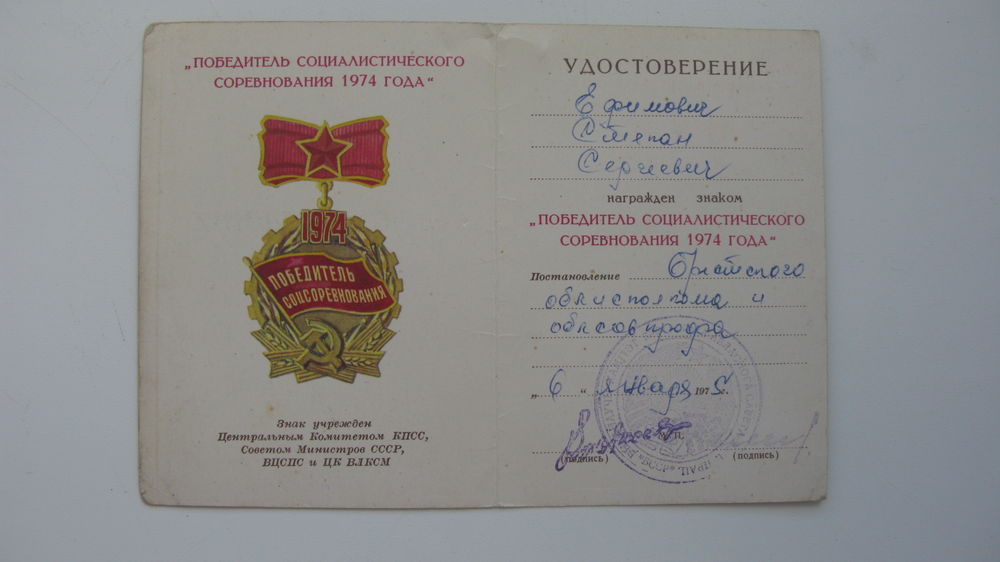 „ПОБЕДИТЕЛЬ СОЦИАЛИСТИЧЕСКОГО
СОРЕВНОВАНИЯ 1974 ГОДА“
1974
ПОБЕДИТЕЛЬ
СОЦСОРЕВНОВАНИЯ
Знак учрежден
Центральным Комитетом КПСС,
Советом Министров СССР,
ВЦСПС и ЦК ВЛКСМ
УДОСТОВЕРЕНИЕ
Ефимович
Степан
Сергеевич
награжден знаком
„ПОБЕДИТЕЛЬ СОЦИАЛИСТИЧЕСКОГО
СОРЕВНОВАНИЯ 1974 ГОДА“
Постановление Брестского
облисполкома и
облсовпрофа
„6“ января 1975 г.
М. П.
(подпись) (подпись)